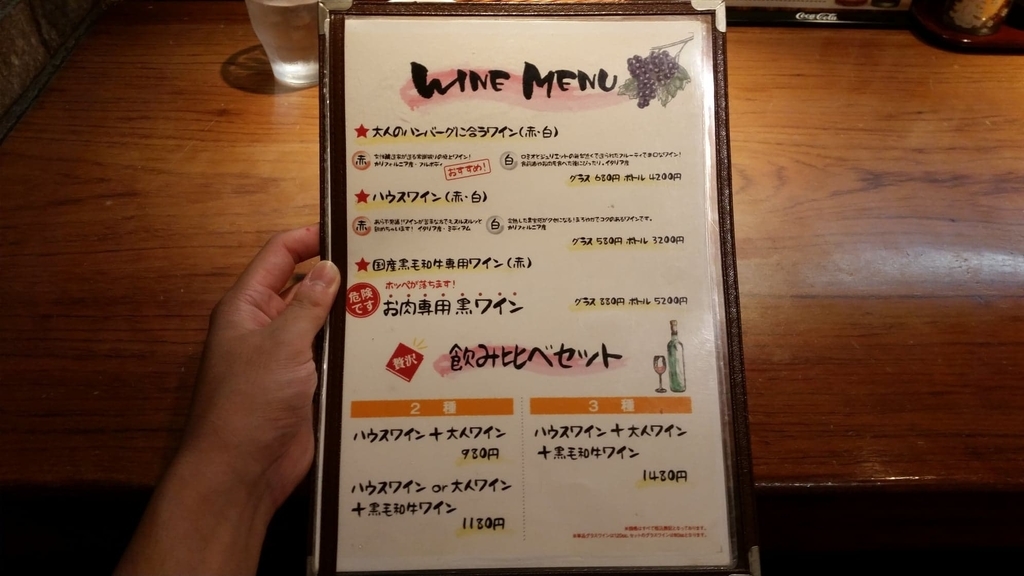 Coca-Cola
WINE MENU
★大人のハンバーグに合うワイン(赤・白)
赤
カリフォルニア産・フルボディ
おすすめ!
白
グラス 680円 ボトル 4200円
★ハウスワイン(赤・白)
赤
イタリア産・ミディアム
白
カリフォルニア産
グラス 580円 ボトル 3200円
★国産黒毛和牛専用ワイン(赤)
危険です
ホッペが落ちます!
お肉専用黒ワイン
グラス 880円 ボトル 5200円
贅沢
飲み比べセット
2種
ハウスワイン+大人ワイン
980円
ハウスワイン or 大人ワイン
+黒毛和牛ワイン
1180円
3種
ハウスワイン+大人ワイン
+黒毛和牛ワイン
1480円